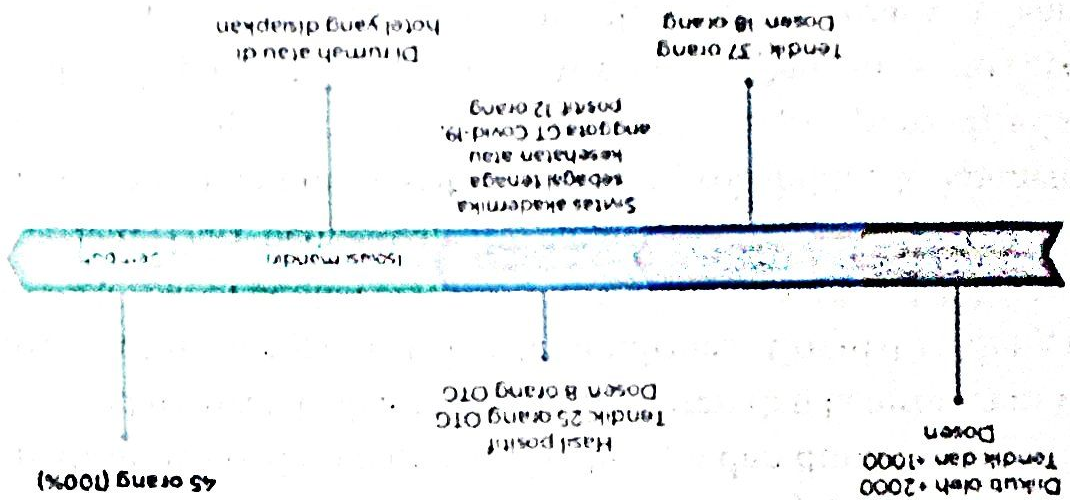 Diikuti oleh ±2000
Tendik dan ±1000
Dosen
Hasil positif
Tendik 25 orang OTG
Dosen 8 orang OTG
45 orang (100%)
Isolasi mandiri
Tendik 37 orang
Dosen 18 orang
Sivitas akademika
sebagai tenaga
kesehatan atau
anggota GT Covid-19,
positif 12 orang
Di rumah atau di
hotel yang disiapkan